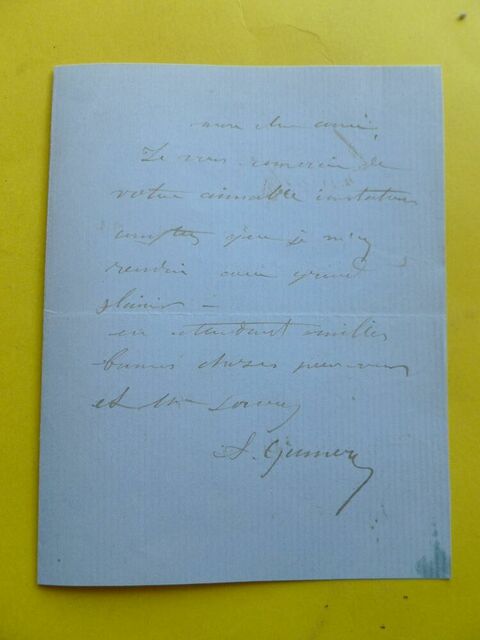 mon cher ami,
Je vous remercie de
votre aimable invitation
comptez que je m'y
rendrai avec grand
plaisir –
en attendant milles
bonnes choses pour vous
et Mme